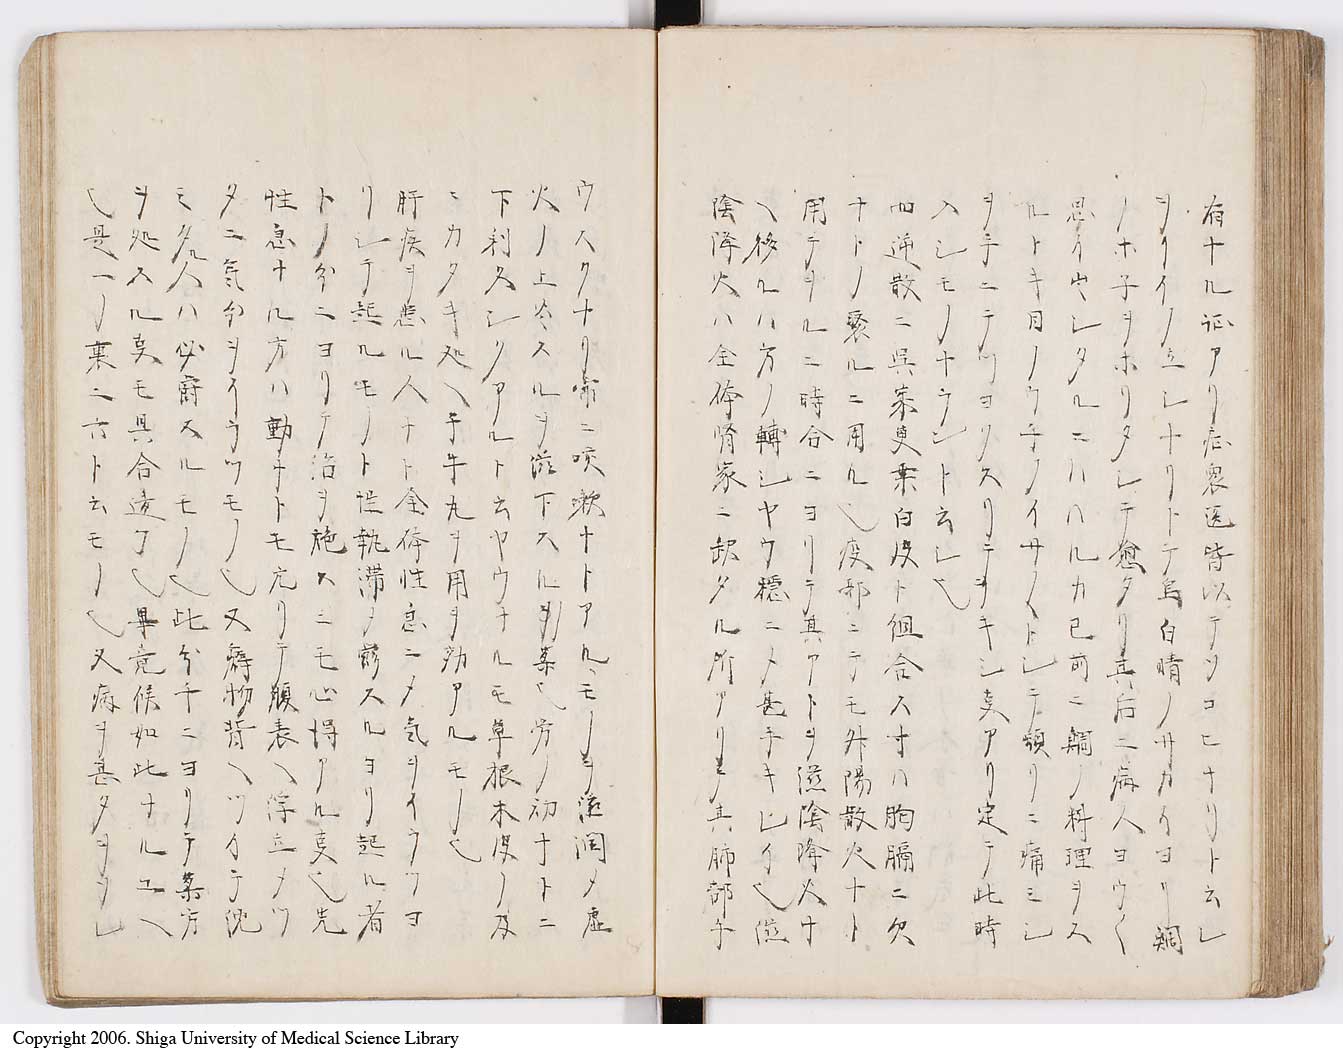 有ナル証アリ症衆医皆以テソコヒナリト云し
ヲリイノ立シナリトテ烏白睛ノサカイヨリ鯛
ノホ子ヲホリタシテ癒タリ其后ニ病人ヨウ〱
思イ出シタルニハハルカ已前ニ鯛ノ料理ヲス
ルトキ目ノウチノイサ〱トシテ頻リニ痛ミシ
ヲ手ニテツヨクスリテヲキシ㕝アリ定テ此時
入シモノナラント云しも
四逆散ニ呉茱萸葉白皮ト組合ス寸ハ胸膈ニ欠
ナトノ聚ルニ用ル也疫邪ニテモ外陽散火ナト
用テヲルニ時合ニヨリテ真アトヲ滋陰降火ナ
へ移ルハ方ノ轉シヤウ穏ニメ甚手キレイ也滋
陰降火ハ全体腎家ニ缺タル所アリメ其肺部チ
ウスクナリ常ニ咳嗽ナトアル、モノヲ滋潤メ虚
火ノ上令スルヲ滋下スルノ薬也労ノ初ナトニ
下利久シクアルト云ヤウナルモ草根木皮ノ及
ミカタキ処へ子牛丸ヲ用ヲ効アルモノ也
肝疾ヲ患ル人ナト全体性急ニメ気ヲイラツヨ
リシテ起ルモノト性執滞メ鬱スルヨリ起ル者
トノ分ニヨリテ治ヲ施スニモ心得アル㕝也先
性急ナル方ハ動ナトモ亢リテ頭表へ浮立メツ
タニ気分ヲイラツモノ也又癖物背へツイテ沈
ミタル人ハ必鬱スルモノ也此分チニヨリテ薬方
ヲ処スル㕝モ具合違フ也畢竟候如此ナルユへ
也是一ノ裏ニ六ト云モノ也又病ヲ甚タヲソし